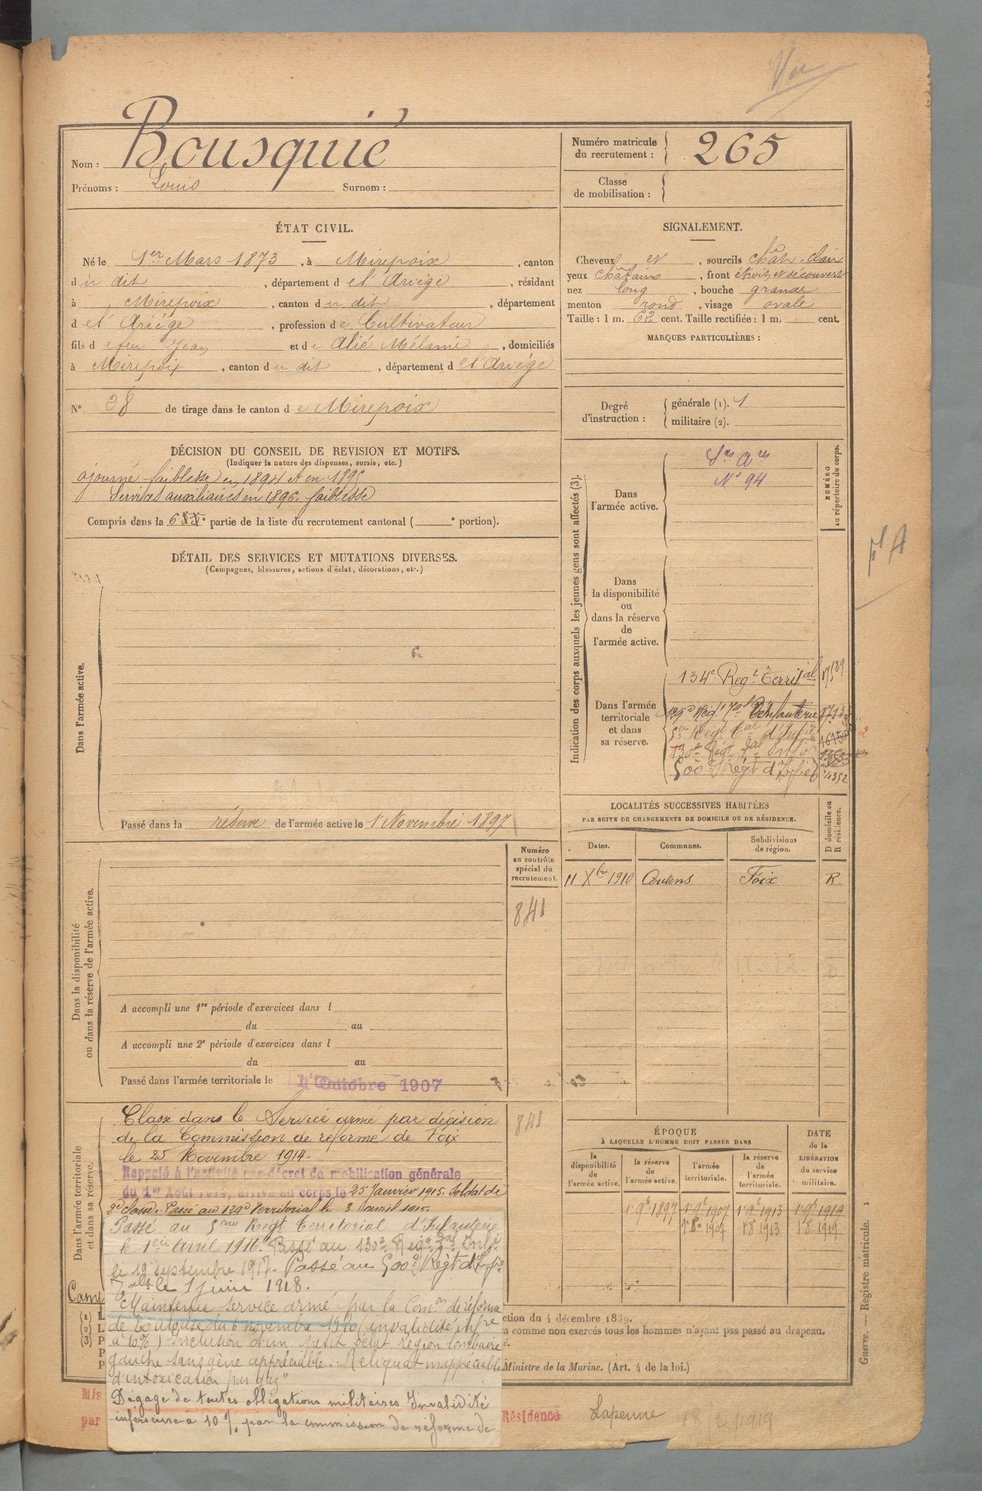 Vu
Nom : Bousquié
Prénoms : Louis Surnom :
Numéro matricule du recrutement : 265
Classe de mobilisation :
ÉTAT CIVIL.
Né le 1er Mars 1873, à Mirepoix, canton
du dit, département de l'Ariége, résidant
à Mirepoix, canton du dit, département
de l'Ariége, profession de Cultivateur
fils de feu Jean et de Alié Mélanie, domiciliés
à Mirepoix, canton du dit, département de l'Ariége
N° 38 de tirage dans le canton de Mirepoix
SIGNALEMENT.
Cheveux et, sourcils chât. clair
yeux châtains, front étroit et découvert
nez long, bouche grande
menton rond, visage ovale
Taille : 1 m. 62 cent. Taille rectifiée : 1 m. cent.
MARQUES PARTICULIÈRES :
Degré d'instruction : générale (1). 1
militaire (2).
DÉCISION DU CONSEIL DE REVISION ET MOTIFS.
(Indiquer la nature des dispenses, sursis, etc.)
ajourné faiblesse en 1894 et en 1895
Services auxiliaires en 1896. faiblesse
Compris dans la 6e partie de la liste du recrutement cantonal ( e portion).
DÉTAIL DES SERVICES ET MUTATIONS DIVERSES.
(Campagnes, blessures, actions d'éclat, décorations, etc.)
Dans l'armée active.
Passé dans la réserve de l'armée active le 1 Novembre 1897
Indication des corps auxquels les jeunes gens sont affectés (3).
NUMÉRO au répertoire du corps.
Dans l'armée active.
N° 94
Dans la disponibilité ou dans la réserve de l'armée active.
Dans l'armée territoriale et dans sa réserve.
134e Régt Territal
500e Régt d'Infie
LOCALITÉS SUCCESSIVES HABITÉES
PAR SUITE DE CHANGEMENTS DE DOMICILE OU DE RÉSIDENCE.
Dates. Communes. Subdivisions de région. D domicile ou R résidence.
11 Xbre 1910 Coutens Foix R
Numéro au contrôle spécial du recrutement.
841
Dans la disponibilité ou dans la réserve de l'armée active.
A accompli une 1re période d'exercices dans l
du au
A accompli une 2e période d'exercices dans l
du au
Passé dans l'armée territoriale le 1er Octobre 1907
841
Dans l'armée territoriale et dans sa réserve.
Classé dans le Service armé par décision
de la Commission de réforme de Foix
le 25 Novembre 1914.
Rappelé à l'activité par décret de mobilisation générale
du 1er Août 1914, arrivé au corps le 25 Janvier 1915. Soldat de
2e classe. Passé au 132e territorial le
Passé au 5eme Regt Territorial d'Infanterie
le 1er Avril 1916. Passé au 130e Regt Tal Infie
le 12 septembre 1917. Passé au 500e Régt d'Infie
le 1 juin 1918.
"Maintenu service armé par la Comon de réforme
de Toulouse du 6 novembre 1920 (invalidité infre
à 10%) Inclusion d'un petit éclat région lombaire
gauche sans gêne appréciable. Reliquat inappréciable
d'intoxication par gaz"
Dégagé de toutes obligations militaires Invalidité
inférieure à 10% par la commission de réforme de
ÉPOQUE
À LAQUELLE L'HOMME DOIT PASSER DANS
la disponibilité de l'armée active.
la réserve de l'armée active.
l'armée territoriale.
la réserve de l'armée territoriale.
DATE de la LIBÉRATION du service militaire.
1 9bre 1897 1 9bre 1907 1 9bre 1913 1 9bre 1919
1 8bre 1907 1 8 1913 1 8 1919
ction du 4 décembre 1889.
a comme non exercés tous les hommes n'ayant pas passé au drapeau.
Ministre de la Marine. (Art. 4 de la loi.)
Mis
par
Résidence Lapenne
Guerre. — Registre matricule. 1